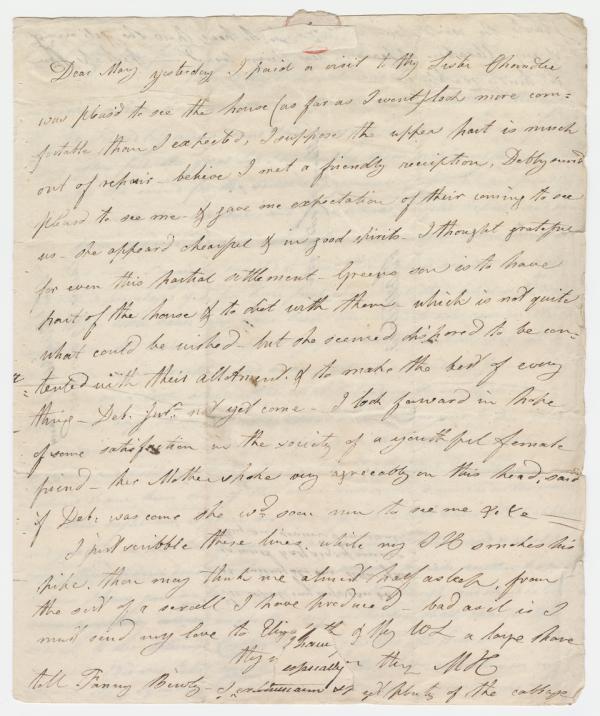 Dear Mary yesterday I paid a visit to thy Sister Chandlee
was pleas'd to see the house (as far as I went) look more com=
fortable than I expected, I suppose the upper part is much
out of repair - behive I met a friendly reception, Debby seem'd
pleasd to see me - & gave me expectation of their coming to see
us - she appeard chearful & in good spirits - I thought grateful
for even this partial settlement - Greens son is to have
part of the house & to diet with them - which is not quite
what could be wished - but she seemed disposed to be con=
tented with their allotment & to make the best of every
thing - Deb: Junr. not yet come - I look forward in hope
of some satisfaction in the society of a youthful female
friend - her Mother spoke very agreeably on this head, said
if Deb: was come she wd. soon run to see me &c &c
I just scribble these lines, while my J H smokes his
pipe. thou may think me almost half asleep, from
the sort of a scroll I have produced - bad as it is I
must send my love to & My WL
thy thy MH
tell Fanny I especially plenty of the cabbage